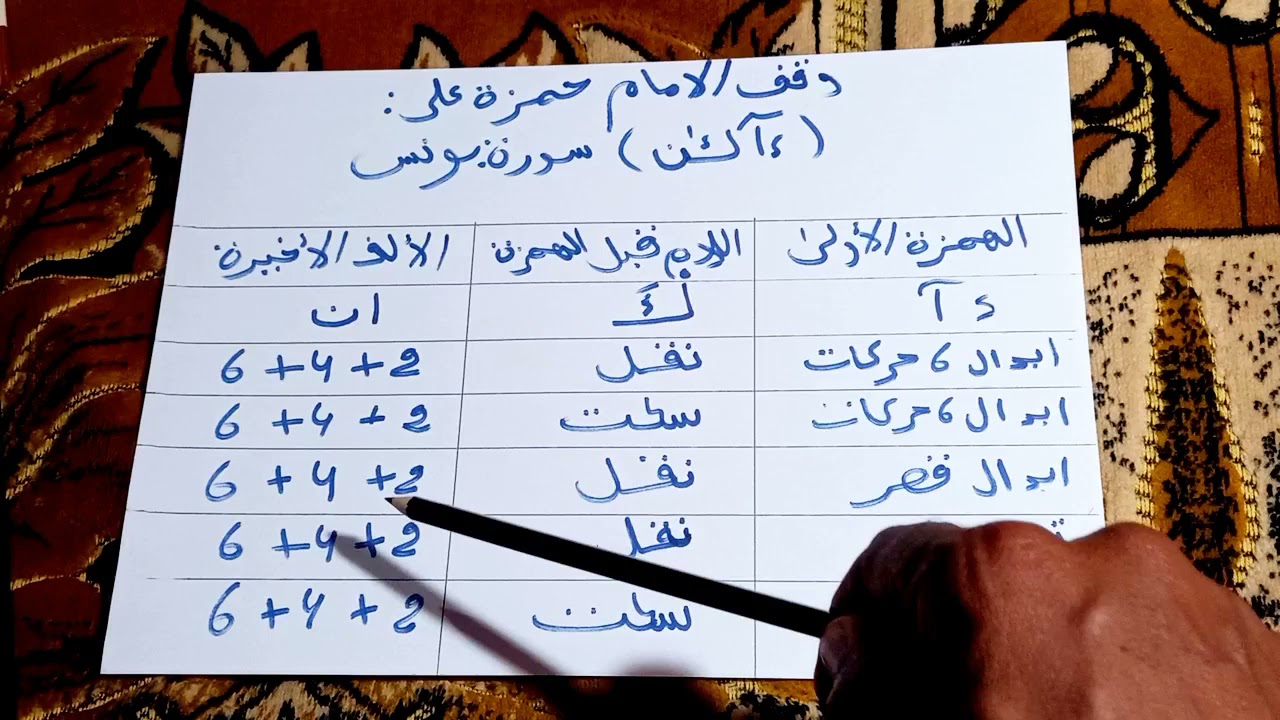 وقف الامام حمزة على:
(ءآلـٰٔن) سورة يونس
الهمزة الأولىٰ اللام قبل الهمزة الألف الأخيرة
ءآ لْـَٔـ ان
ابدال 6 حركات نقل 2 + 4 + 6
ابدال 6 حركات سكت 2 + 4 + 6
ابدال قصر نقل 2 + 4 + 6
نقل 2 + 4 + 6
سكت 2 + 4 + 6